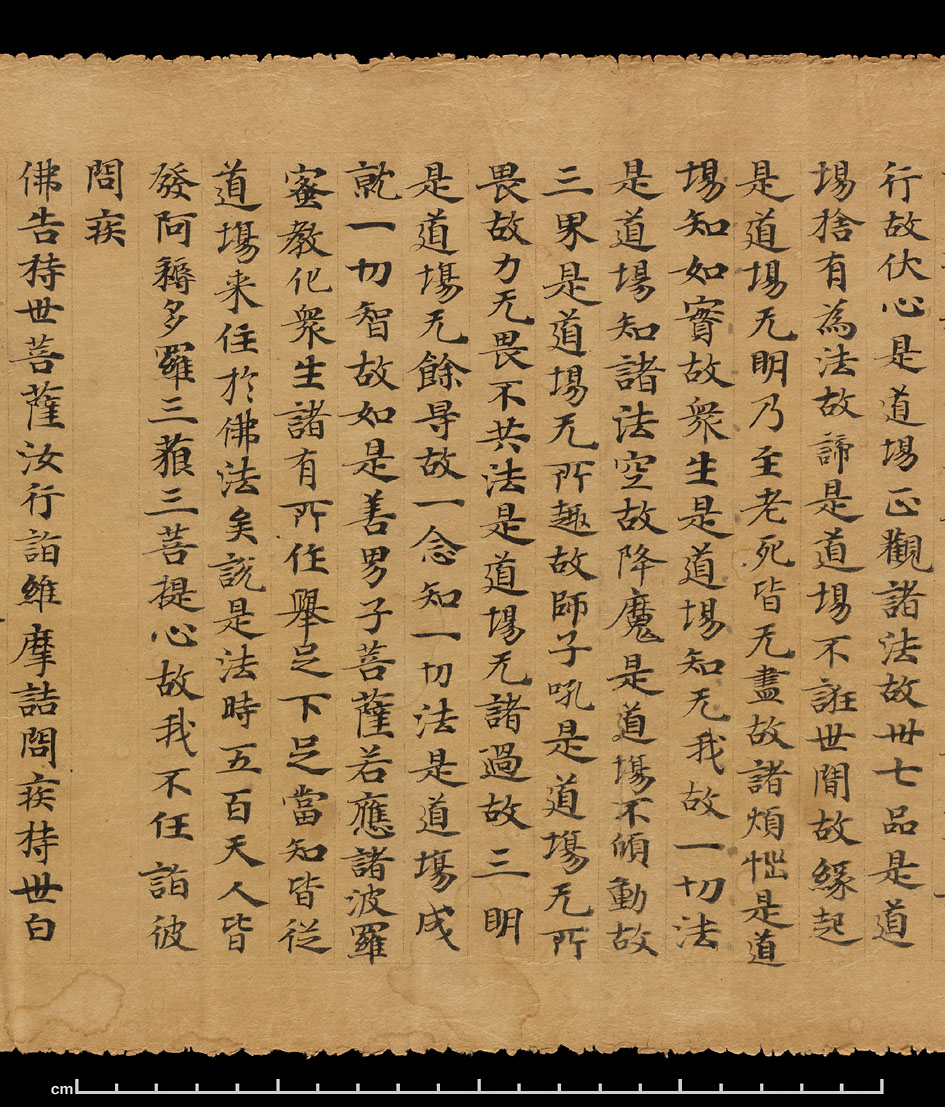 行故伏心是道場正觀諸法故卅七品是道
場捨有為法故諦是道場不誑世間故緣起
是道場无明乃至老死皆无盡故諸煩惱是道
場知如實故衆生是道場知无我故一切法
是道場知諸法空故降魔是道場不傾動故
三界是道場无所趣故師子吼是道場无所
畏故力无畏不共法是道場无諸過故三明
是道場无餘㝵故一念知一切法是道場成
就一切智故如是善男子菩薩若應諸波羅
蜜教化衆生諸有所作舉足下足當知皆從
道場来住於佛法矣說是法時五百天人皆
發阿耨多羅三藐三菩提心故我不任詣彼
問疾
佛告持世菩薩汝行詣維摩詰問疾持世白
cm